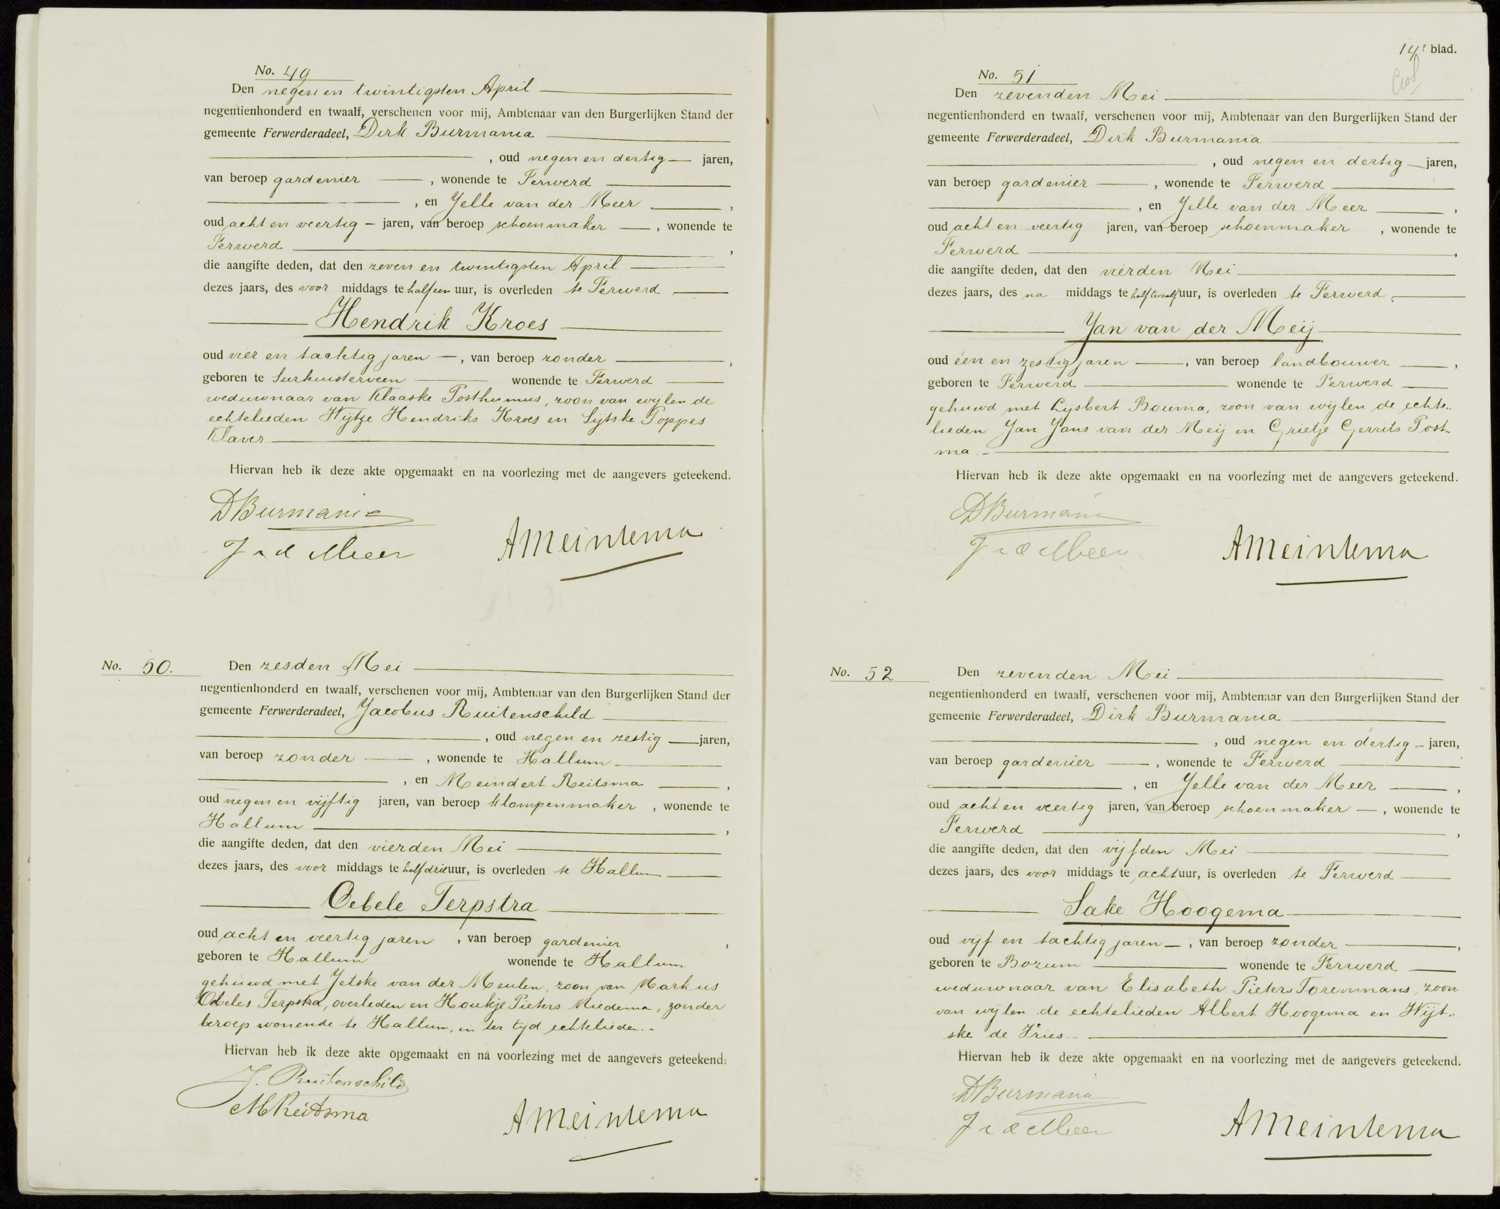 No. 49
Den negen en twintigsten April
negentienhonderd en twaalf, verschenen voor mij, Ambtenaar van den Burgerlijken Stand der
gemeente Ferwerderadeel, Dirk Burmania
, oud negen en dertig jaren,
van beroep gardenier , wonende te Ferwerd
, en Jelle van der Meer ,
oud acht en veertig jaren, van beroep schoenmaker , wonende te
Ferwerd ,
die aangifte deden, dat den zeven en twintigsten April
dezes jaars, des voor middags te half een uur, is overleden te Ferwerd
Hendrik Kroes
oud vier en tachtig jaren , van beroep zonder ,
geboren te Surhuisterveen wonende te Ferwerd
weduwnaar van Klaaske Posthumus, zoon van wijlen de
echtelieden Hijtje Hendriks Kroes en Sytske Poppes
Klaver
Hiervan heb ik deze akte opgemaakt en na voorlezing met de aangevers geteekend.
D Burmania
J v d Meer
A Meintema
No. 50.
Den zesden Mei
negentienhonderd en twaalf, verschenen voor mij, Ambtenaar van den Burgerlijken Stand der
gemeente Ferwerderadeel, Jacobus Ruitenschild
, oud negen en zestig jaren,
van beroep zonder , wonende te Hallum
, en Meindert Reitsma ,
oud negen en vijftig jaren, van beroep klompenmaker , wonende te
Hallum ,
die aangifte deden, dat den vierden Mei
dezes jaars, des voor middags te half drie uur, is overleden te Hallum
Oebele Terpstra
oud acht en veertig jaren , van beroep gardenier ,
geboren te Hallum wonende te Hallum
gehuwd met Jetske van der Meulen, zoon van Markus
Oebeles Terpstra, overleden en Houkje Pieters Miedema, zonder
beroep wonende te Hallum, in ter tijd echtelieden.
Hiervan heb ik deze akte opgemaakt en na voorlezing met de aangevers geteekend.
J. Ruitenschild
M Reitsma
A Meintema
14e blad.
No. 51
Den zevenden Mei
negentienhonderd en twaalf, verschenen voor mij, Ambtenaar van den Burgerlijken Stand der
gemeente Ferwerderadeel, Dirk Burmania
, oud negen en dertig jaren,
van beroep gardenier , wonende te Ferwerd
, en Jelle van der Meer ,
oud acht en veertig jaren, van beroep schoenmaker , wonende te
Ferwerd ,
die aangifte deden, dat den vierden Mei
dezes jaars, des na middags te half twaalf uur, is overleden te Ferwerd
Jan van der Meij
oud één en zestig jaren , van beroep landbouwer ,
geboren te Ferwerd wonende te Ferwerd
gehuwd met Lijsbert Bouma, zoon van wijlen de echte-
lieden Jan Jans van der Meij en Grietje Gerrits Post-
ma
Hiervan heb ik deze akte opgemaakt en na voorlezing met de aangevers geteekend.
D Burmania
J v d Meer
A Meintema
No. 52
Den zevenden Mei
negentienhonderd en twaalf, verschenen voor mij, Ambtenaar van den Burgerlijken Stand der
gemeente Ferwerderadeel, Dirk Burmania
, oud negen en dertig jaren,
van beroep gardenier , wonende te Ferwerd
, en Jelle van der Meer ,
oud acht en veertig jaren, van beroep schoenmaker , wonende te
Ferwerd ,
die aangifte deden, dat den vijfden Mei
dezes jaars, des voor middags te acht uur, is overleden te Ferwerd
Sake Hoogema
oud vijf en tachtig jaren , van beroep zonder ,
geboren te Bozum wonende te Ferwerd
weduwnaar van Elisabeth Pieters Toremmans, zoon
van wijlen de echtelieden Albert Hoogema en Wijt-
ske de Vries
Hiervan heb ik deze akte opgemaakt en na voorlezing met de aangevers geteekend.
D Burmania
J v d Meer
A Meintema